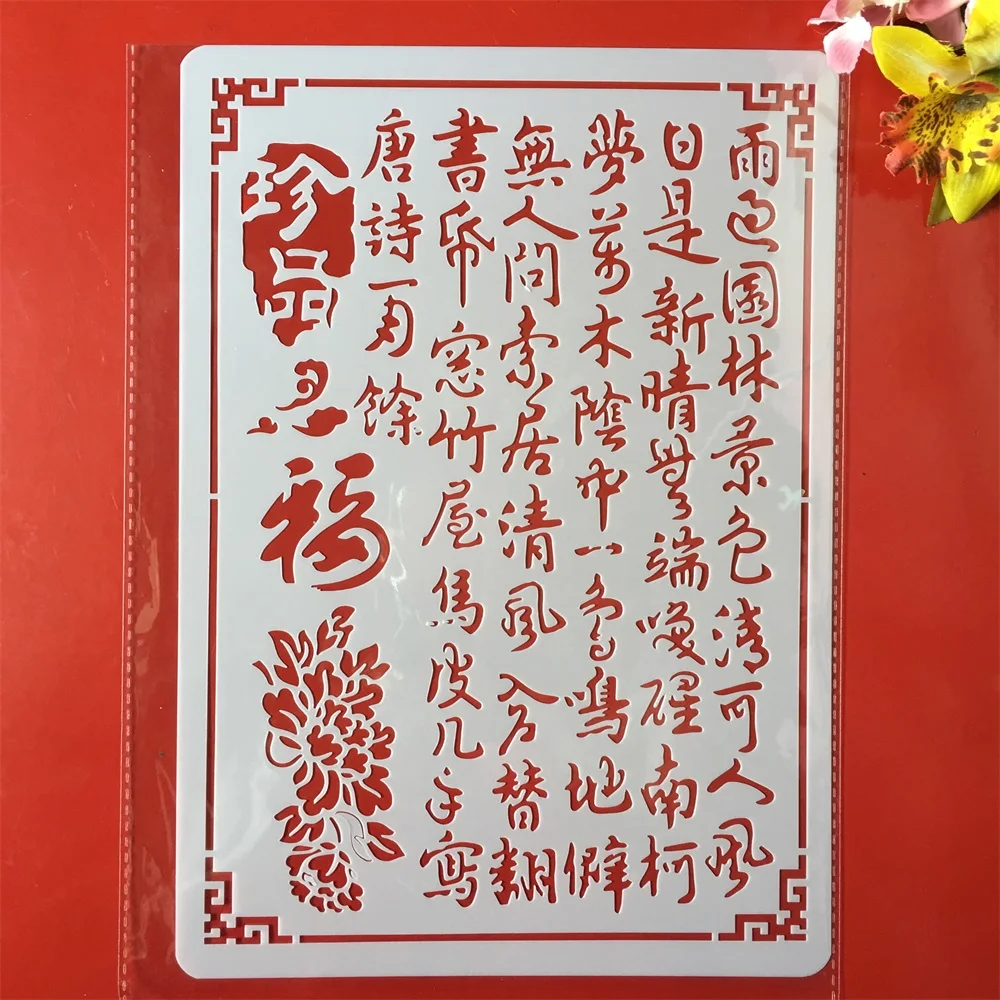 雨過園林景色清可人風
日是新晴無端喚醒南柯
夢萬木陰中一鳥鳴地僻
無人問索居清風入戶替翻
書紙窓竹屋烏皮几手寫
唐詩百餘
珍品
福